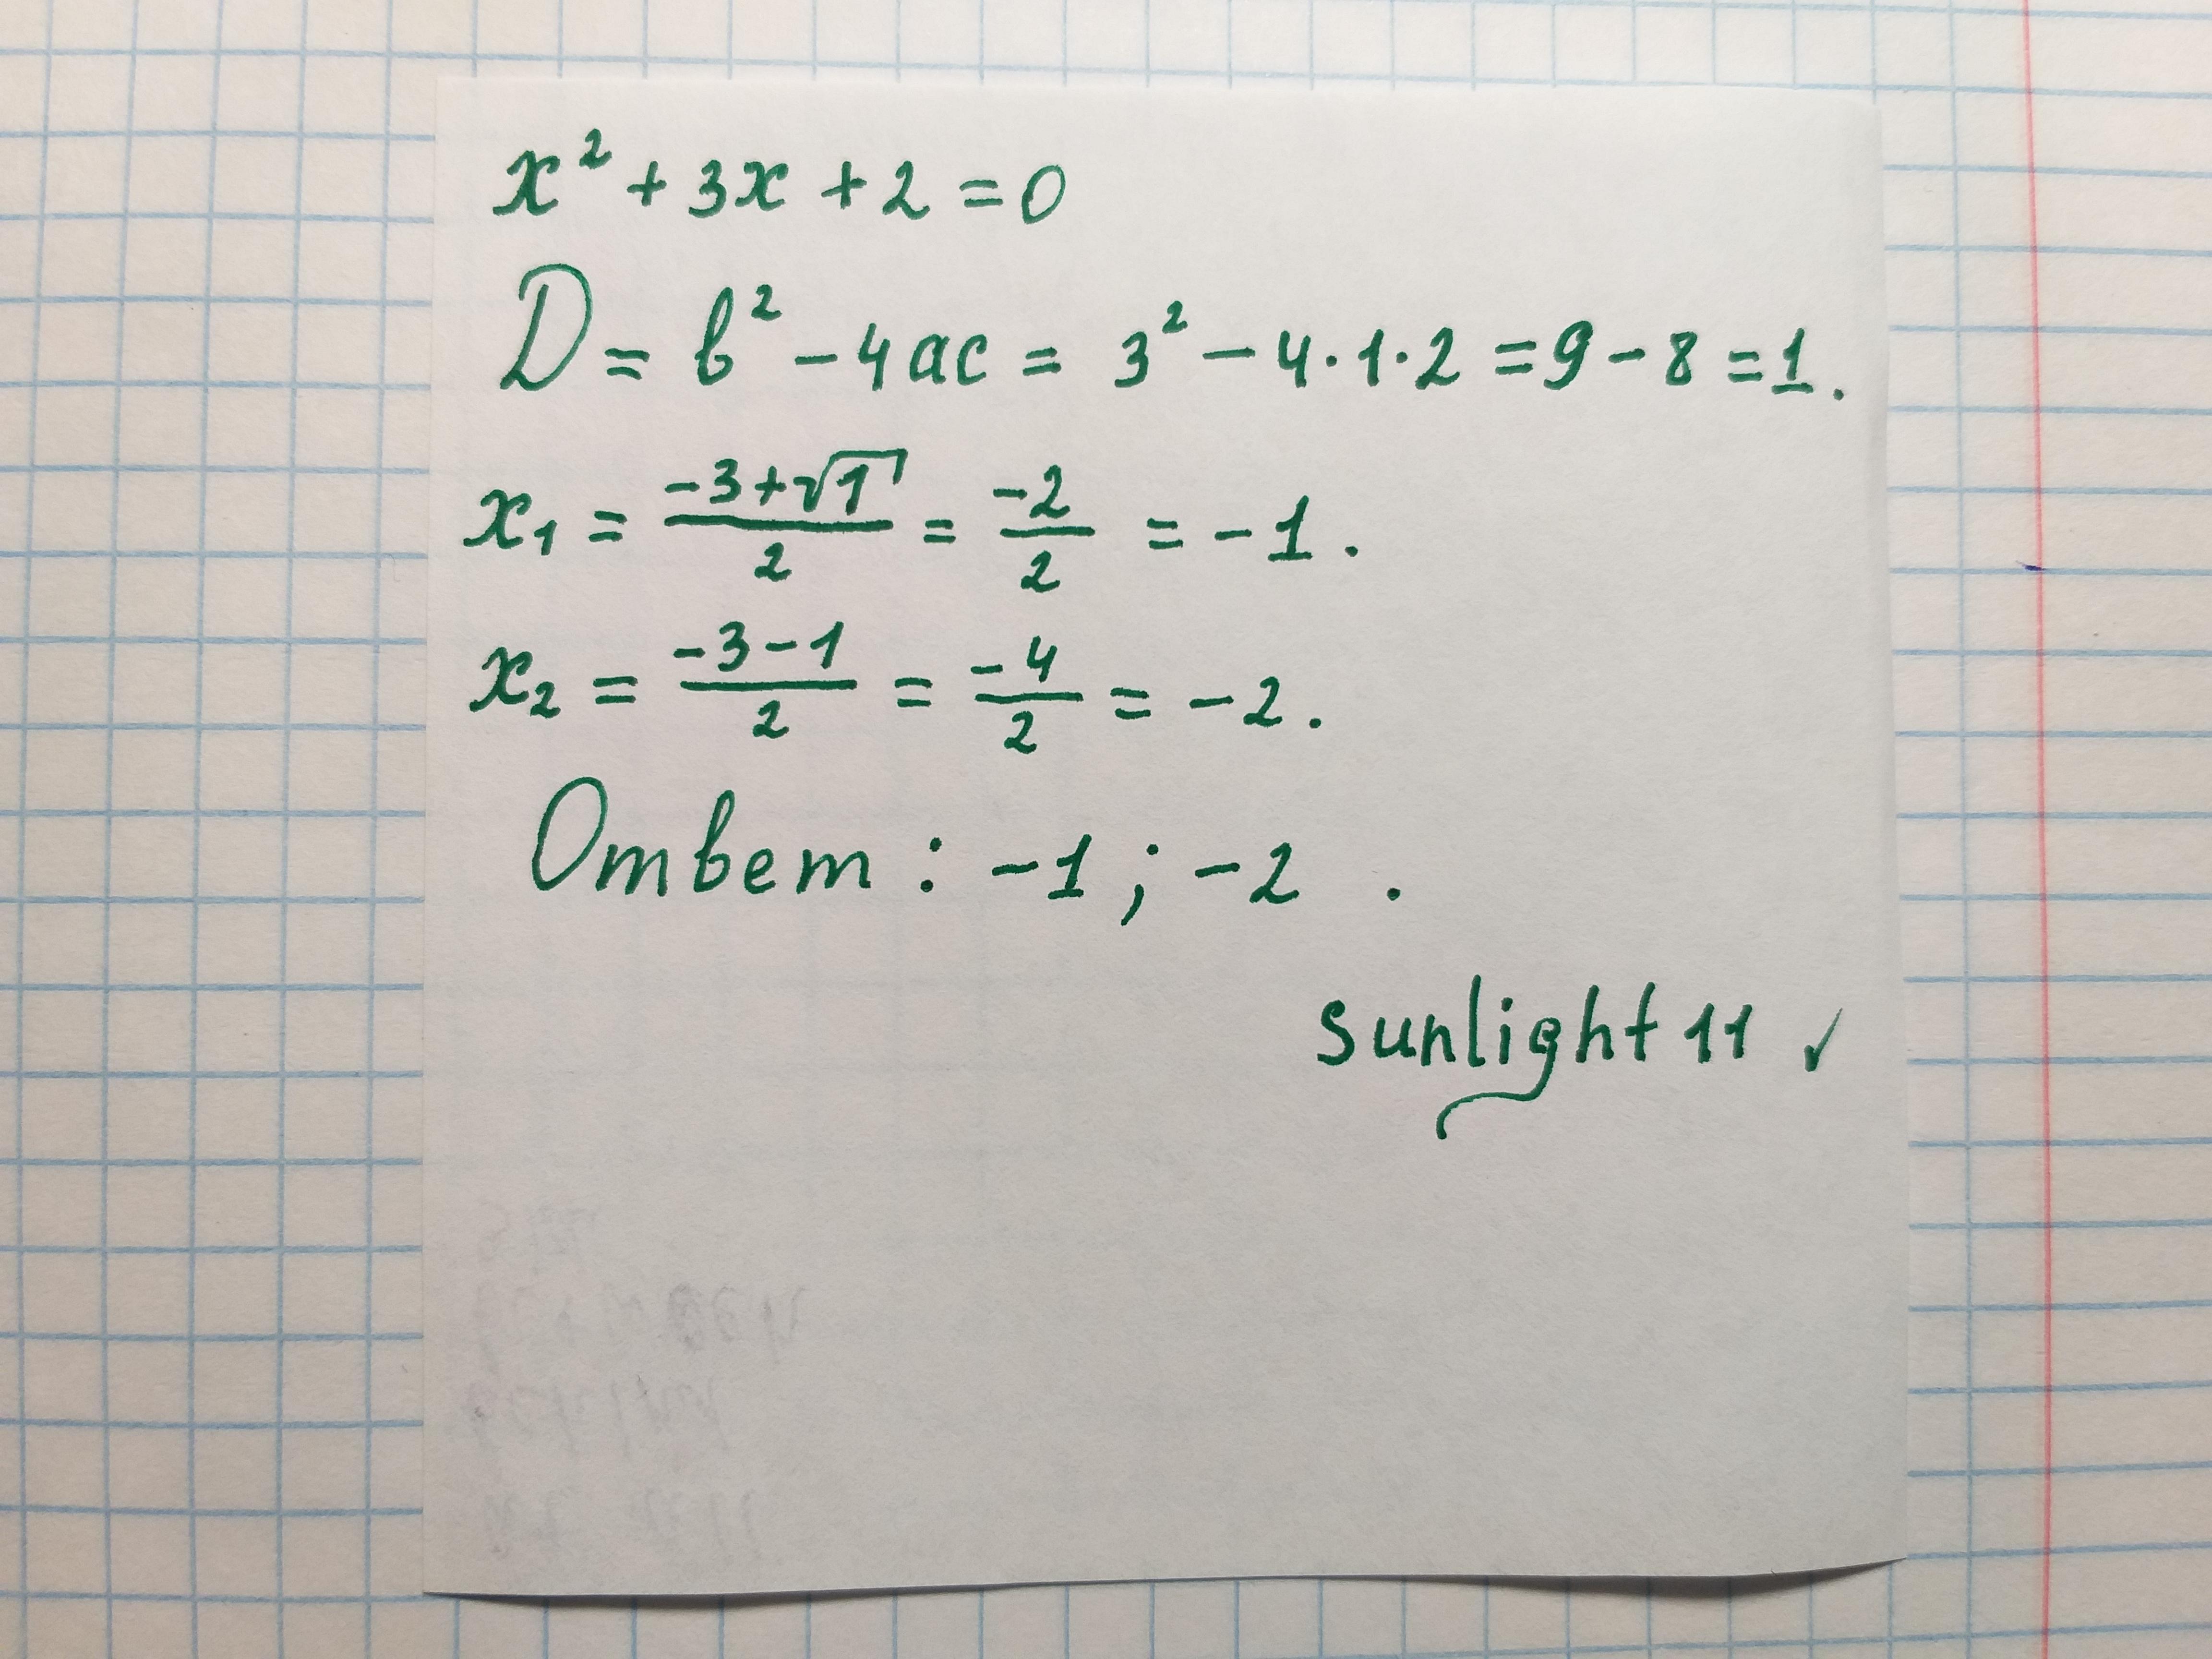 x² + 3x + 2 = 0
D = b² - 4ac = 3² - 4·1·2 = 9 - 8 = 1.
x₁ = (-3+√1)/2 = -2/2 = -1.
x₂ = (-3-1)/2 = -4/2 = -2.
Ответ: -1; -2 .
sunlight 11 ✓